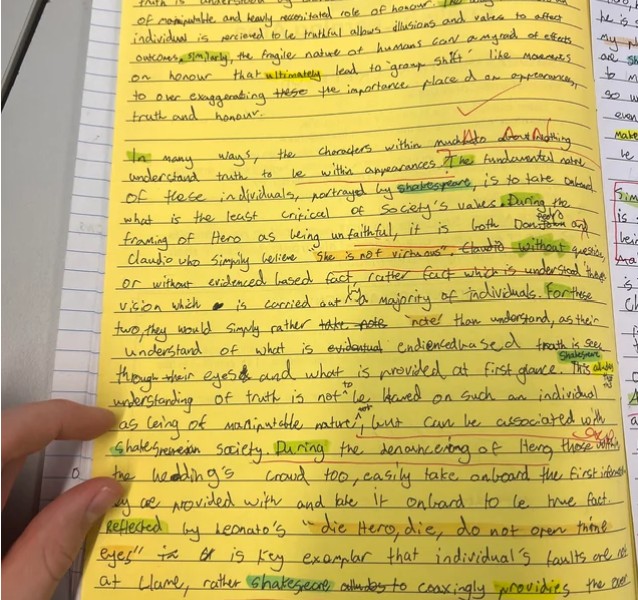 truth is understood by
of manipulatable and heavy reconitated role of honour. The
individual is percieved to be truthful allows illusions and values to affect
outcomes, similarly, the fragile nature of humans can a myread of effects
on honour that ultimately lead to 'group shift' like movements
to over exaggerating these the importance placed on appearances,
truth and honour.
In many ways, the characters within much Ado About Nothing
understand truth to be within appearances. The fundamental nature
of these individuals, portrayed by shakespeare, is to take onboard
what is the least critical of Society's values. During the
framing of Hero as being unfaithful, it is both Don and
Claudio who simpily believe "She is not virtuous". Claudio without question,
or without evidenced based fact rather fact which is understood
vision which is carried out by a majority of individuals. For these
two, they would simply rather take note 'note' than understand, as their
understand of what is evidentual endienced based truth is seen
though their eyes and what is provided at first glance. This Shakespeare
understanding of truth is not to be based on such an individual
as being of manipultable nature, but not can be associated with
shakespereian society. During the denouncering of Hero, those within
the wedding's crowd too, easily take onboard the first
are provided with and take it onboard to be true fact.
Reflected by Leonato's "die Hero, die, do not open thine
eyes" is key examplar that individual's faults are not
at blame, rather shakespeare alludes to coaxingly providies the
he is
my
are
so
even
make
be
is